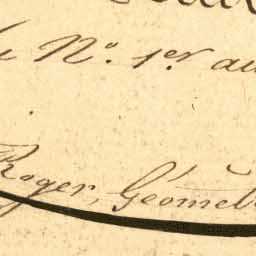 N.º 1.er au
Roger, Géomèt